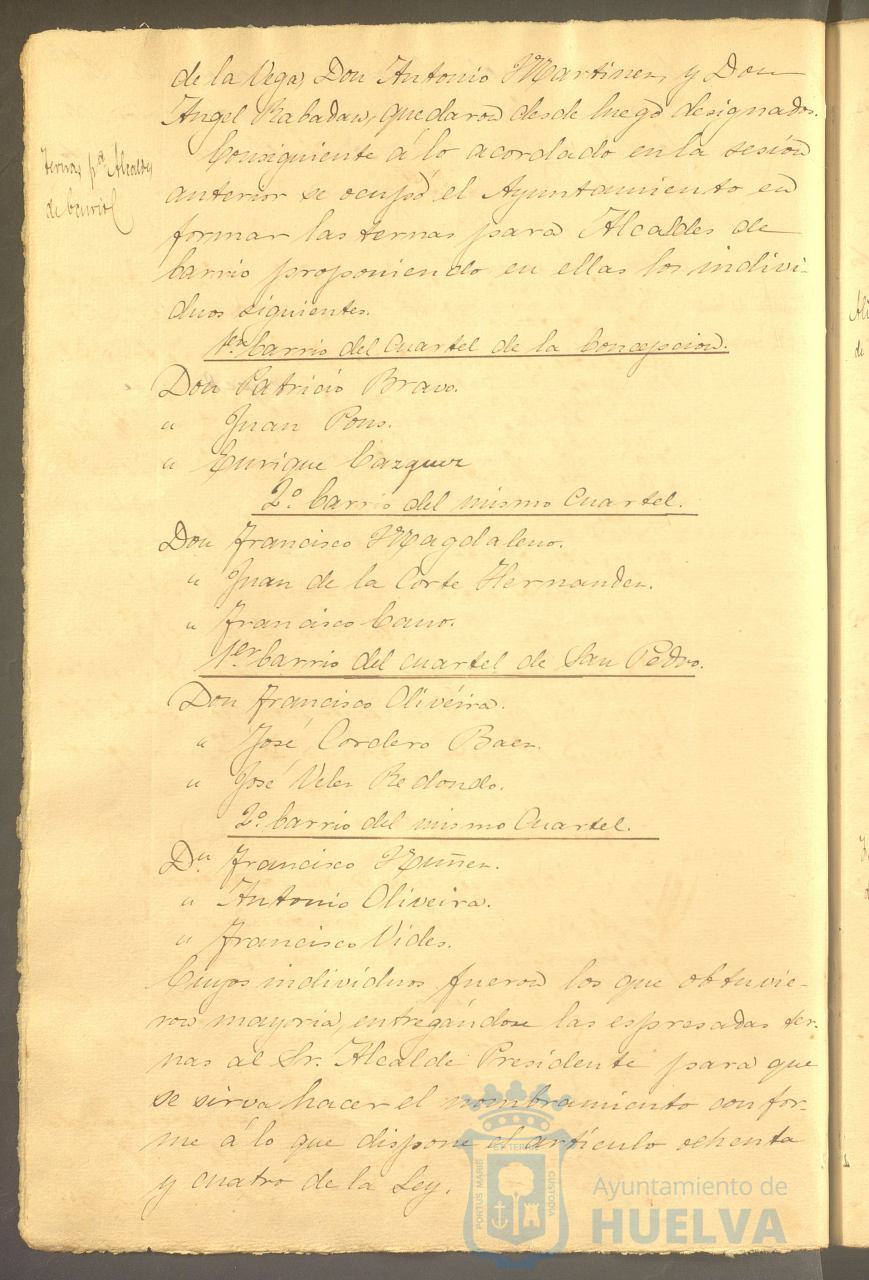 de la Vega, Don Antonio Martinez, y Don
Angel Rabadan, quedaron desde luego designados.
Ternas pª Alcaldes
de barrio
Consiguiente á lo acordado en la sesion
anterior se ocupó el Ayuntamiento en
formar las ternas para Alcaldes de
barrio proponiendo en ellas los indivi-
duos siguientes.
1er barrio del Cuartel de la Concepcion.
Don Patricio Bravo.
" Juan Pons.
" Enrique Cazquez
2º barrio del mismo Cuartel.
Don Francisco Magdaleno.
" Juan de la Corte Hernandez.
" Francisco Cano.
1er barrio del cuartel de San Pedro.
Don Francisco Olivéira.
" José Cordero Baez.
" José Velez Redondo.
2º barrio del mismo Cuartel.
Dn Francisco Nuñez.
" Antonio Oliveira.
" Francisco Vides.
Cuyos individuos fueron los que obtuvie-
ron mayoria, entregándose las espresadas ter-
nas al Sr. Alcalde Presidente para que
se sirva hacer el nombramiento confor-
me á lo que dispone el artículo ochenta
y cuatro de la Ley.
PORTUS MARIS
ET TERRAE
CUSTODIA
Ayuntamiento de
HUELVA